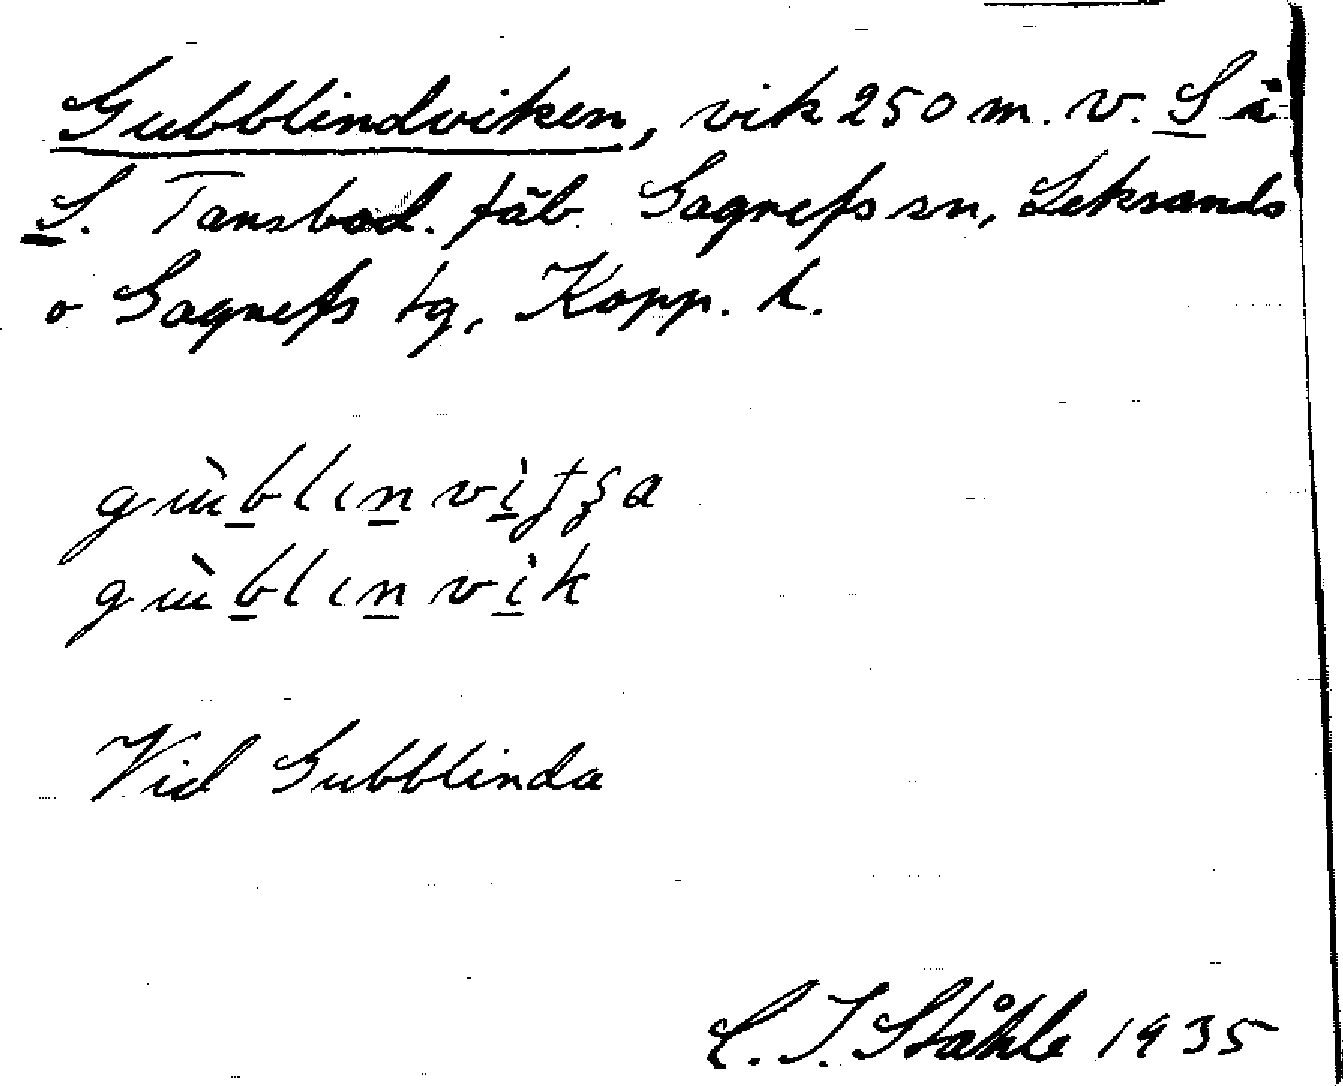 Gubblindviken, vik 250 m. v. S ä
S. Tansbod. fäb. Gagnefs sn, Leksands
o Gagnefs tg, Kopp. l.
Vid Gubblinda
C. I. Ståhle 1935